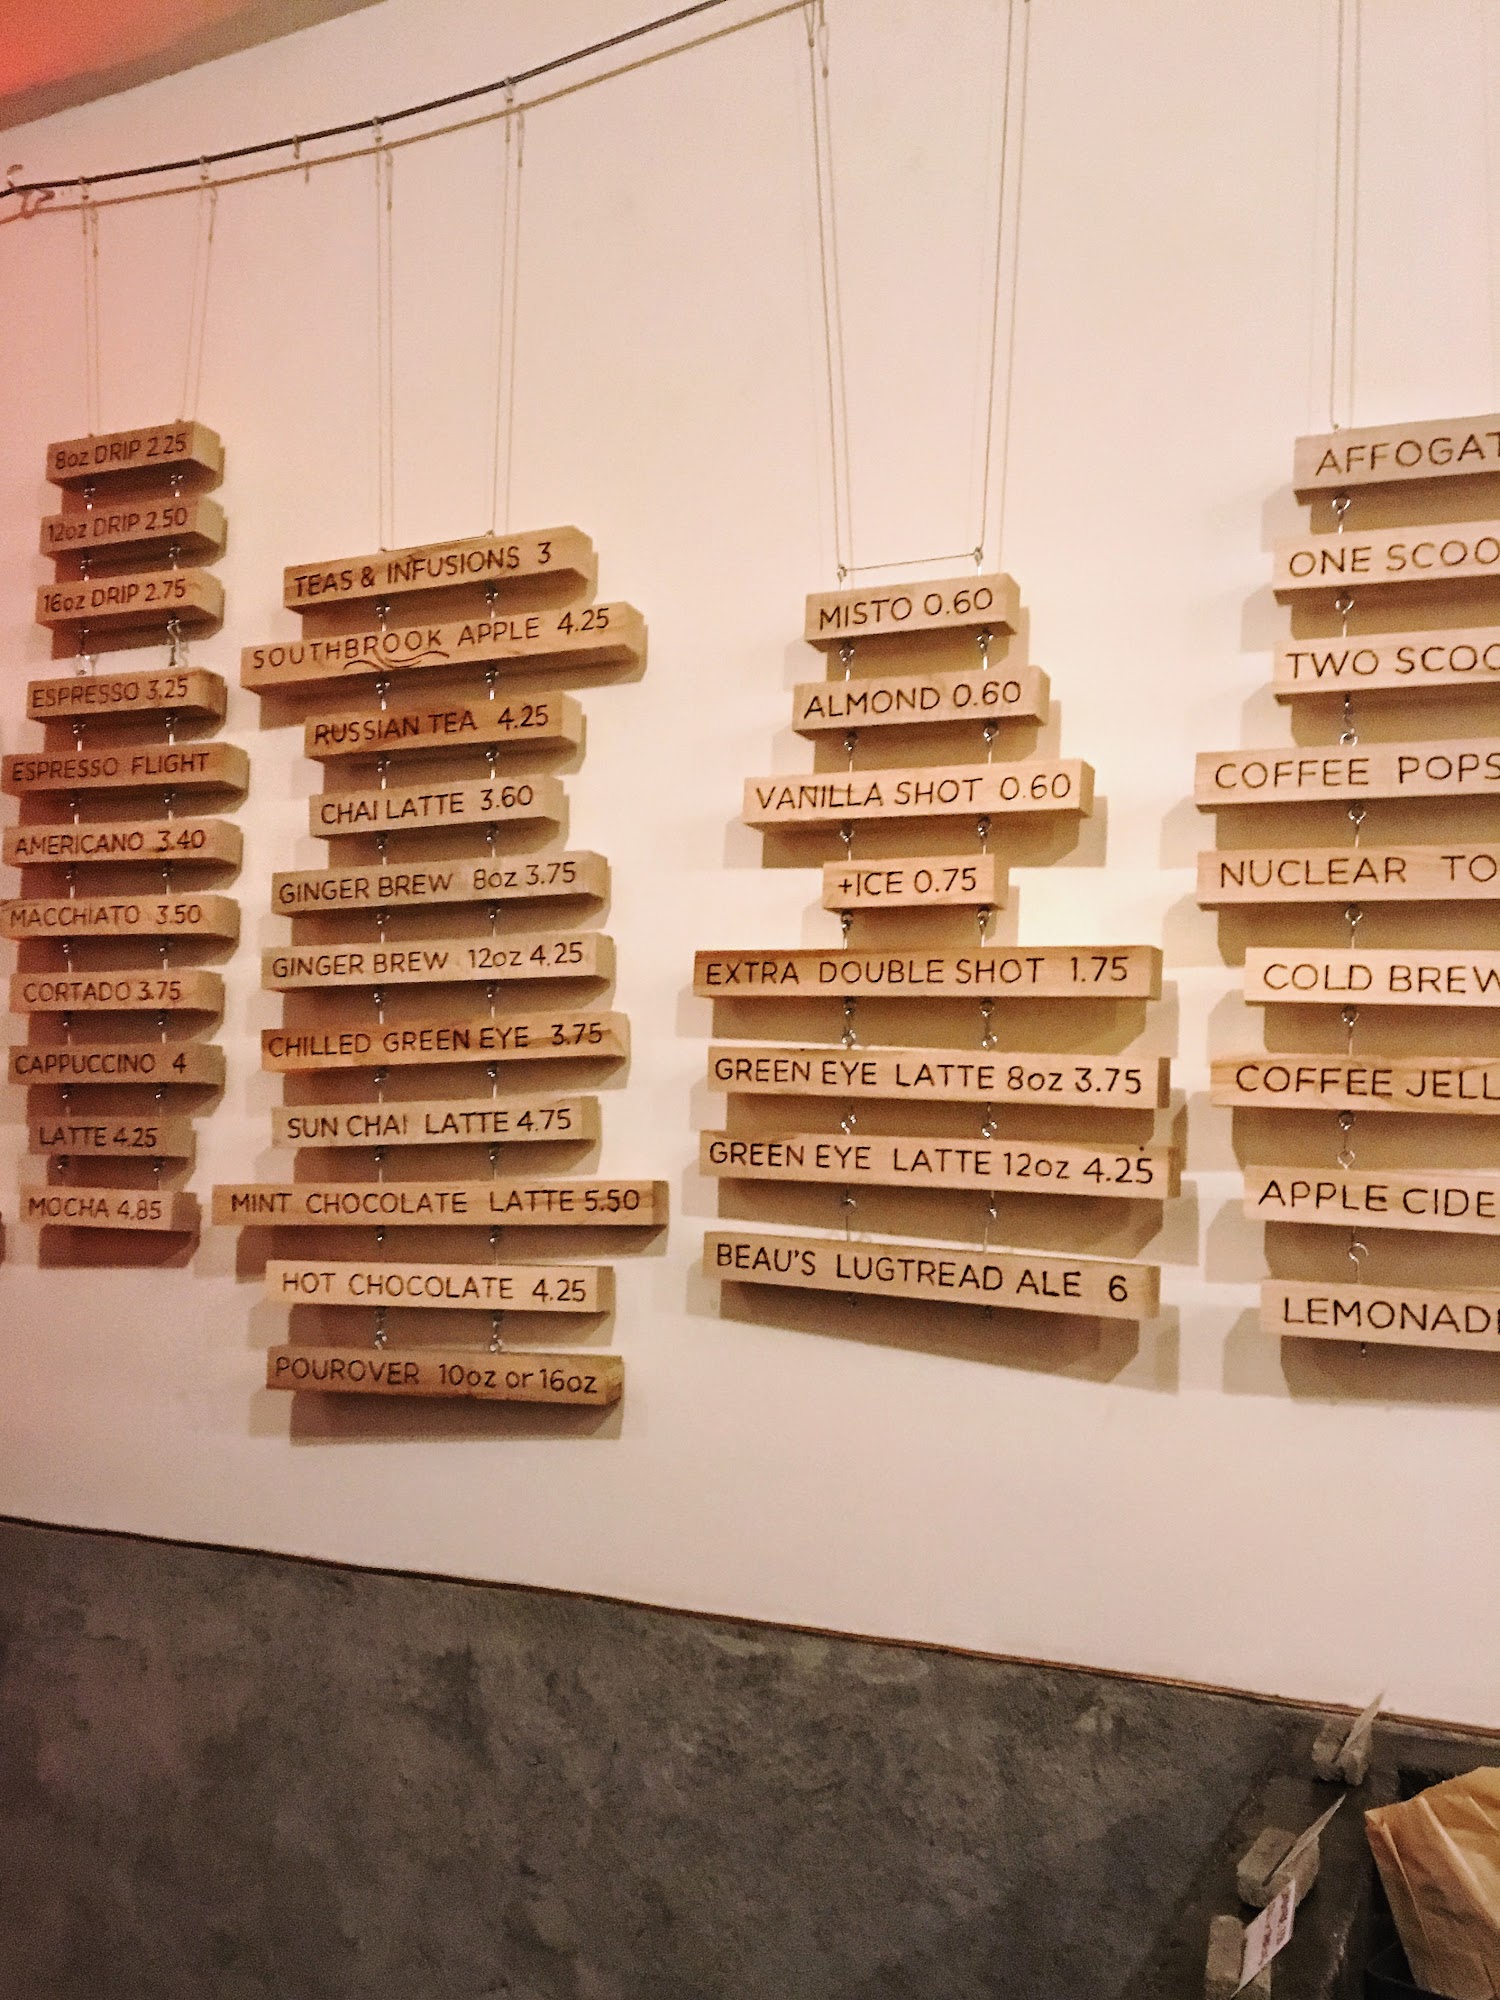 8oz DRIP 2.25
12oz DRIP 2.50
16oz DRIP 2.75
ESPRESSO 3.25
ESPRESSO FLIGHT
AMERICANO 3.40
MACCHIATO 3.50
CORTADO 3.75
CAPPUCCINO 4
LATTE 4.25
MOCHA 4.85
TEAS & INFUSIONS 3
SOUTHBROOK APPLE 4.25
RUSSIAN TEA 4.25
CHAI LATTE 3.60
GINGER BREW 8oz 3.75
GINGER BREW 12oz 4.25
CHILLED GREEN EYE 3.75
SUN CHAI LATTE 4.75
MINT CHOCOLATE LATTE 5.50
HOT CHOCOLATE 4.25
POUROVER 10oz or 16oz
MISTO 0.60
ALMOND 0.60
VANILLA SHOT 0.60
+ICE 0.75
EXTRA DOUBLE SHOT 1.75
GREEN EYE LATTE 8oz 3.75
GREEN EYE LATTE 12oz 4.25
BEAU'S LUGTREAD ALE 6
AFFOGAT
ONE SCOO
TWO SCOO
COFFEE POPS
NUCLEAR TO
COLD BREW
COFFEE JELL
APPLE CIDE
LEMONAD